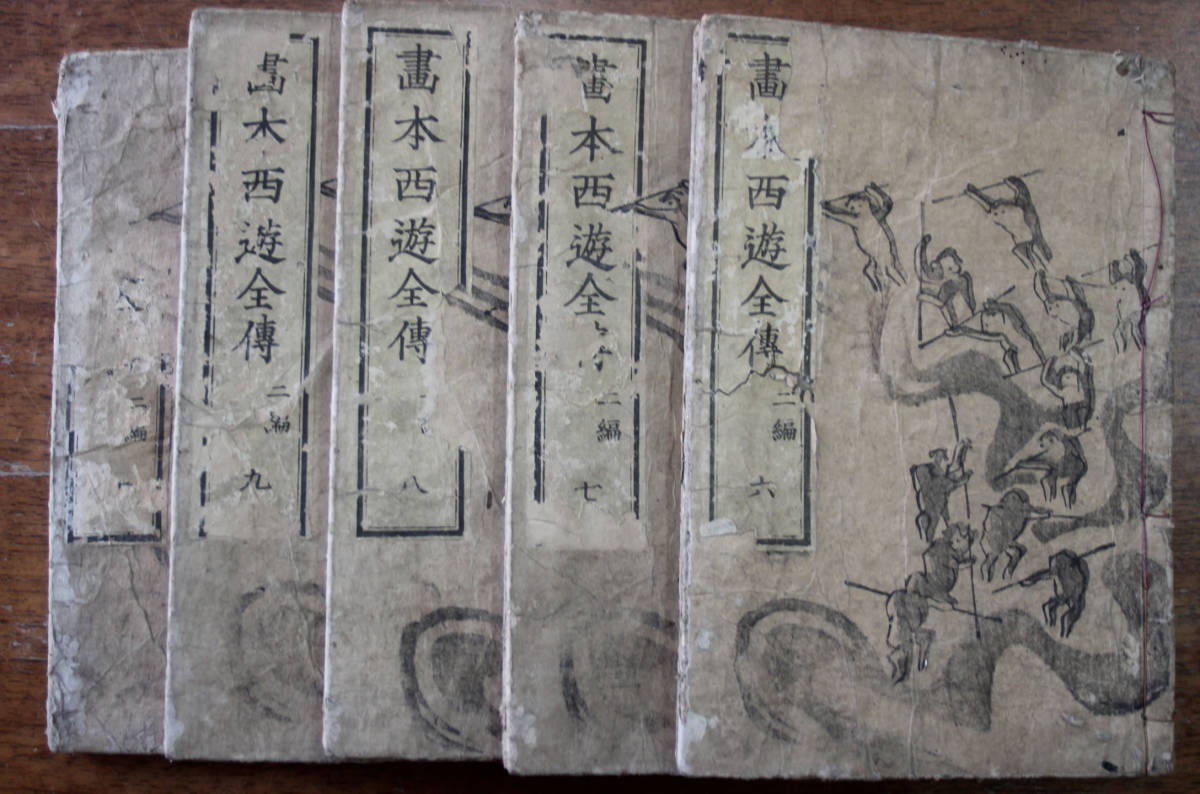 畫本西遊全傳 二編 六
畫本西遊全 二編 七
畫本西遊全傳 八
畫本西遊全傳 二編 九
二編